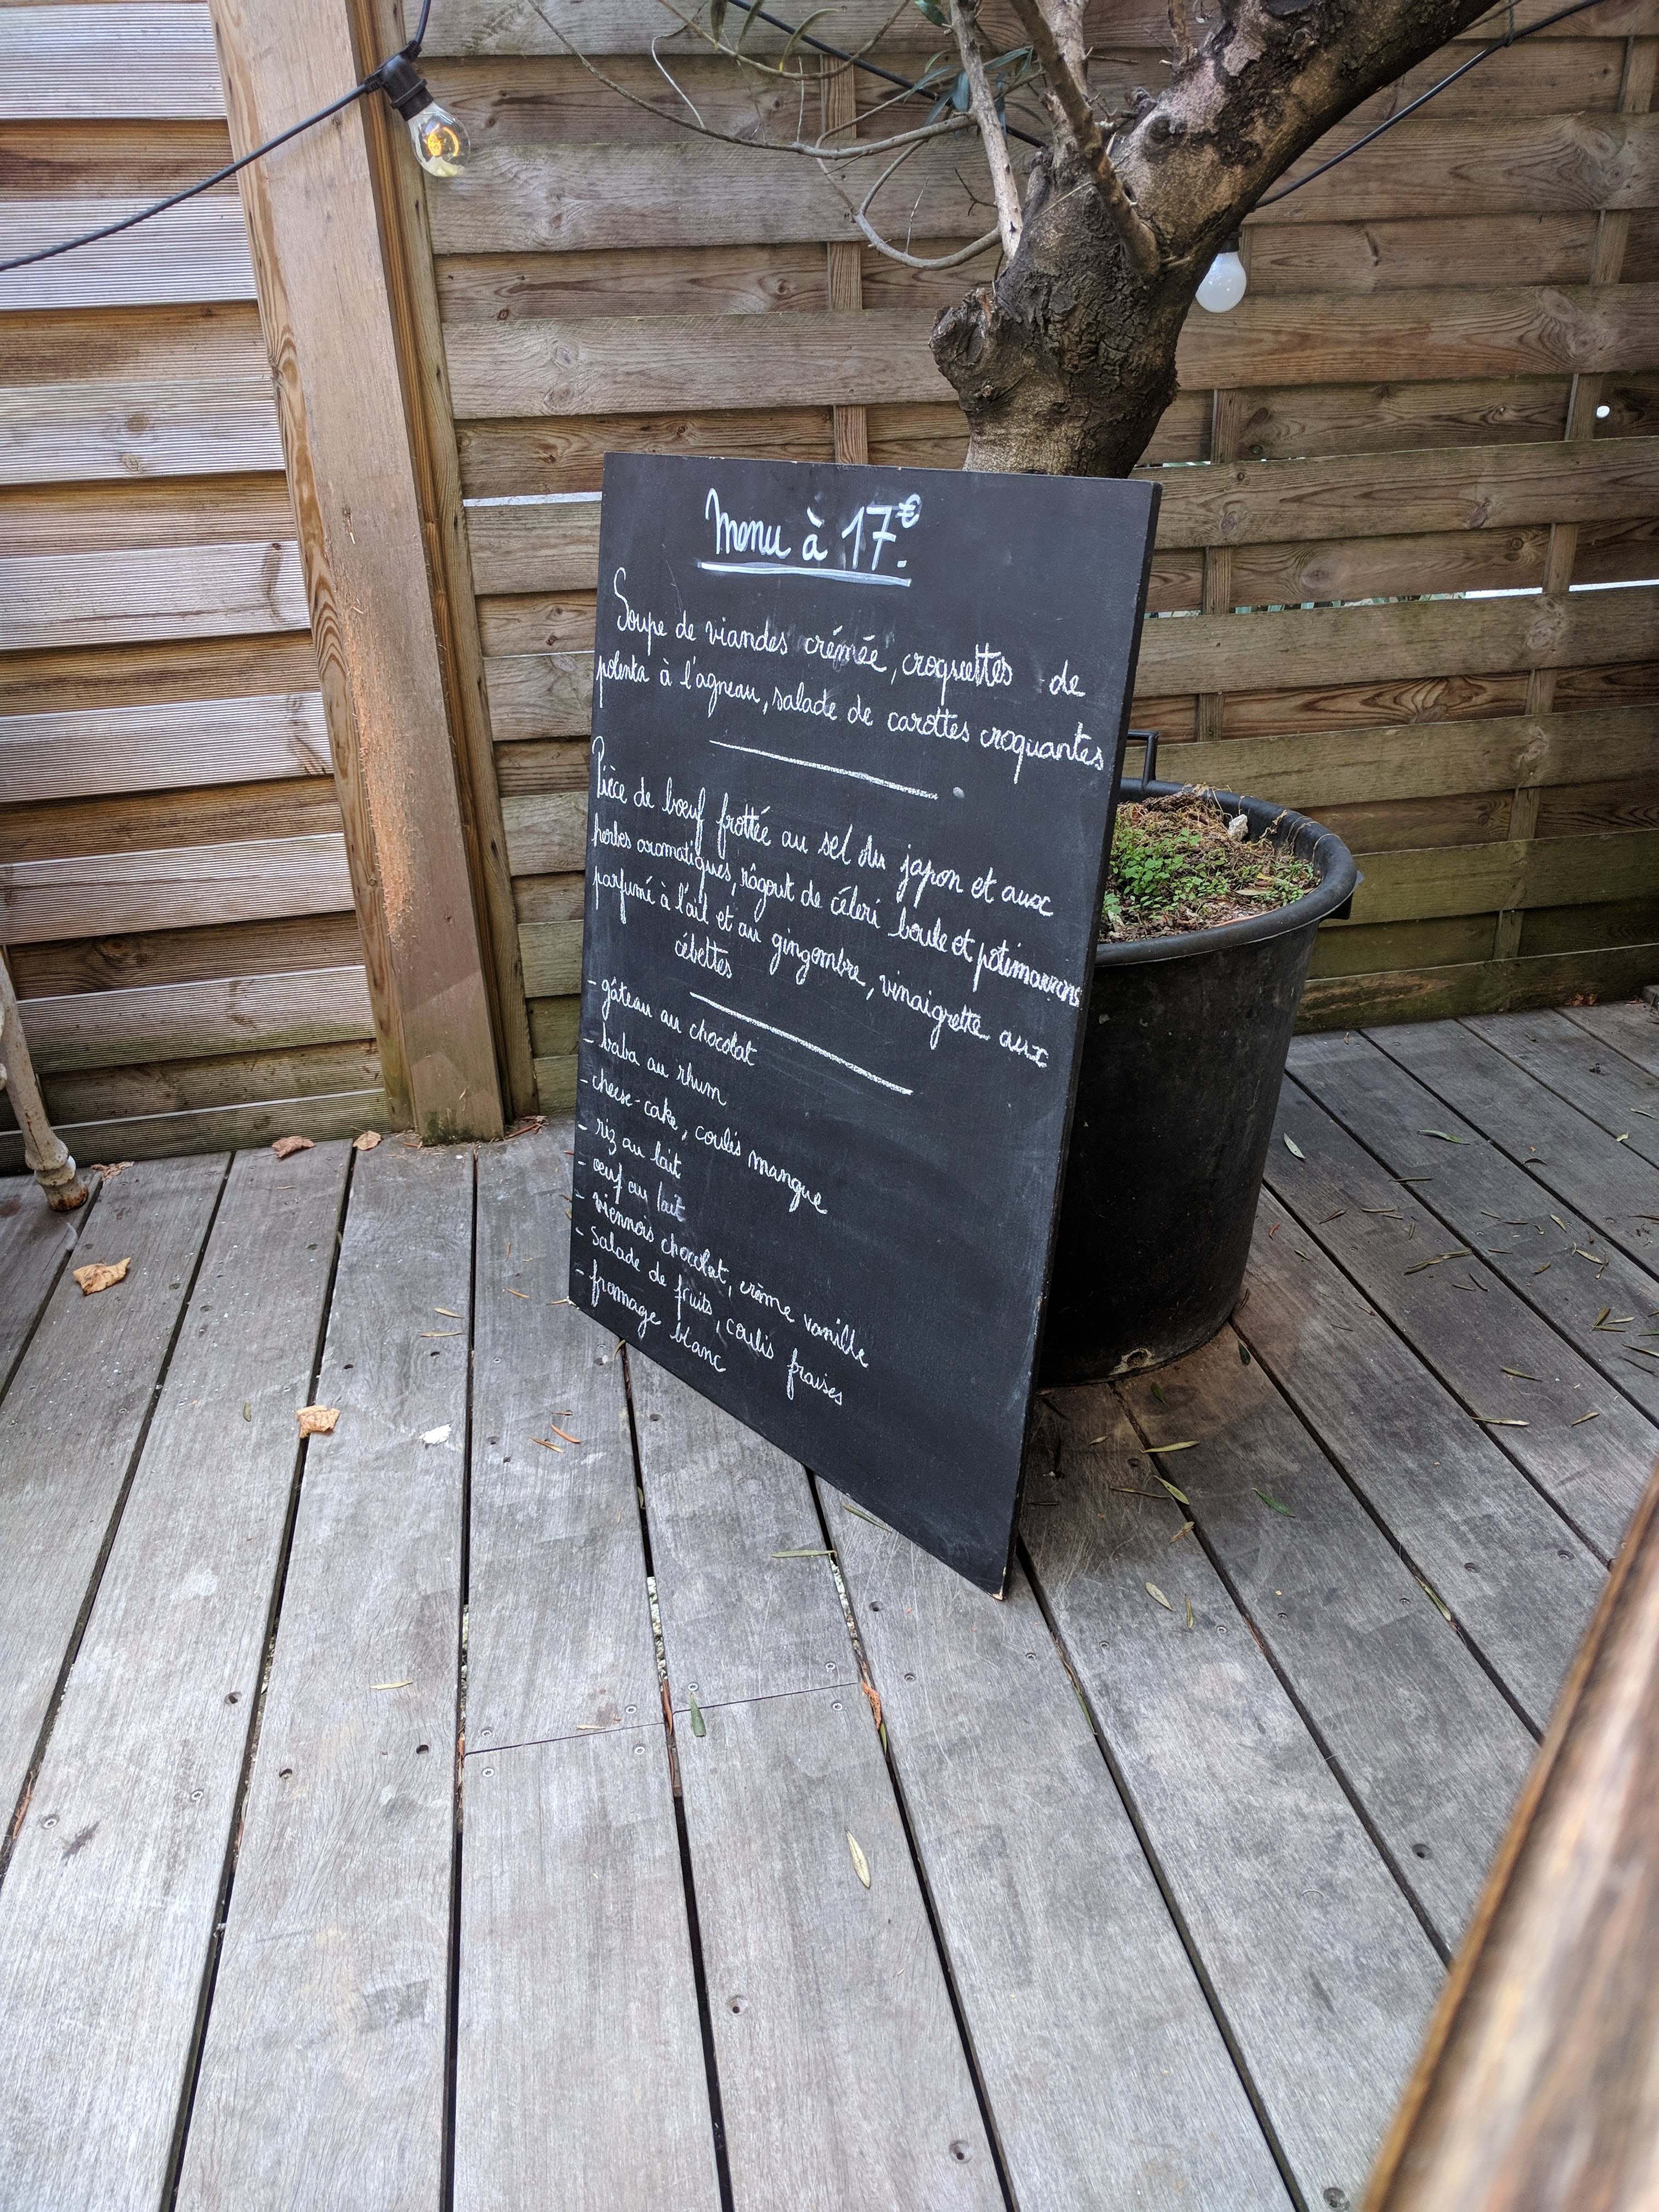 Menu à 17€.
Soupe de viandes crémée, croquettes de
polenta à l'agneau, salade de carottes croquantes
Pièce de bœuf frottée au sel du japon et aux
herbes aromatiques, râgout de céleri boule et potimarrons
parfumé à l'ail et au gingembre, vinaigrette aux
cébettes
- gâteau au chocolat
- baba au rhum
- cheese-cake, coulis mangue
- riz au lait
- œuf au lait
- viennois chocolat, crème vanille
- Salade de fruits, coulis fraises
- fromage blanc